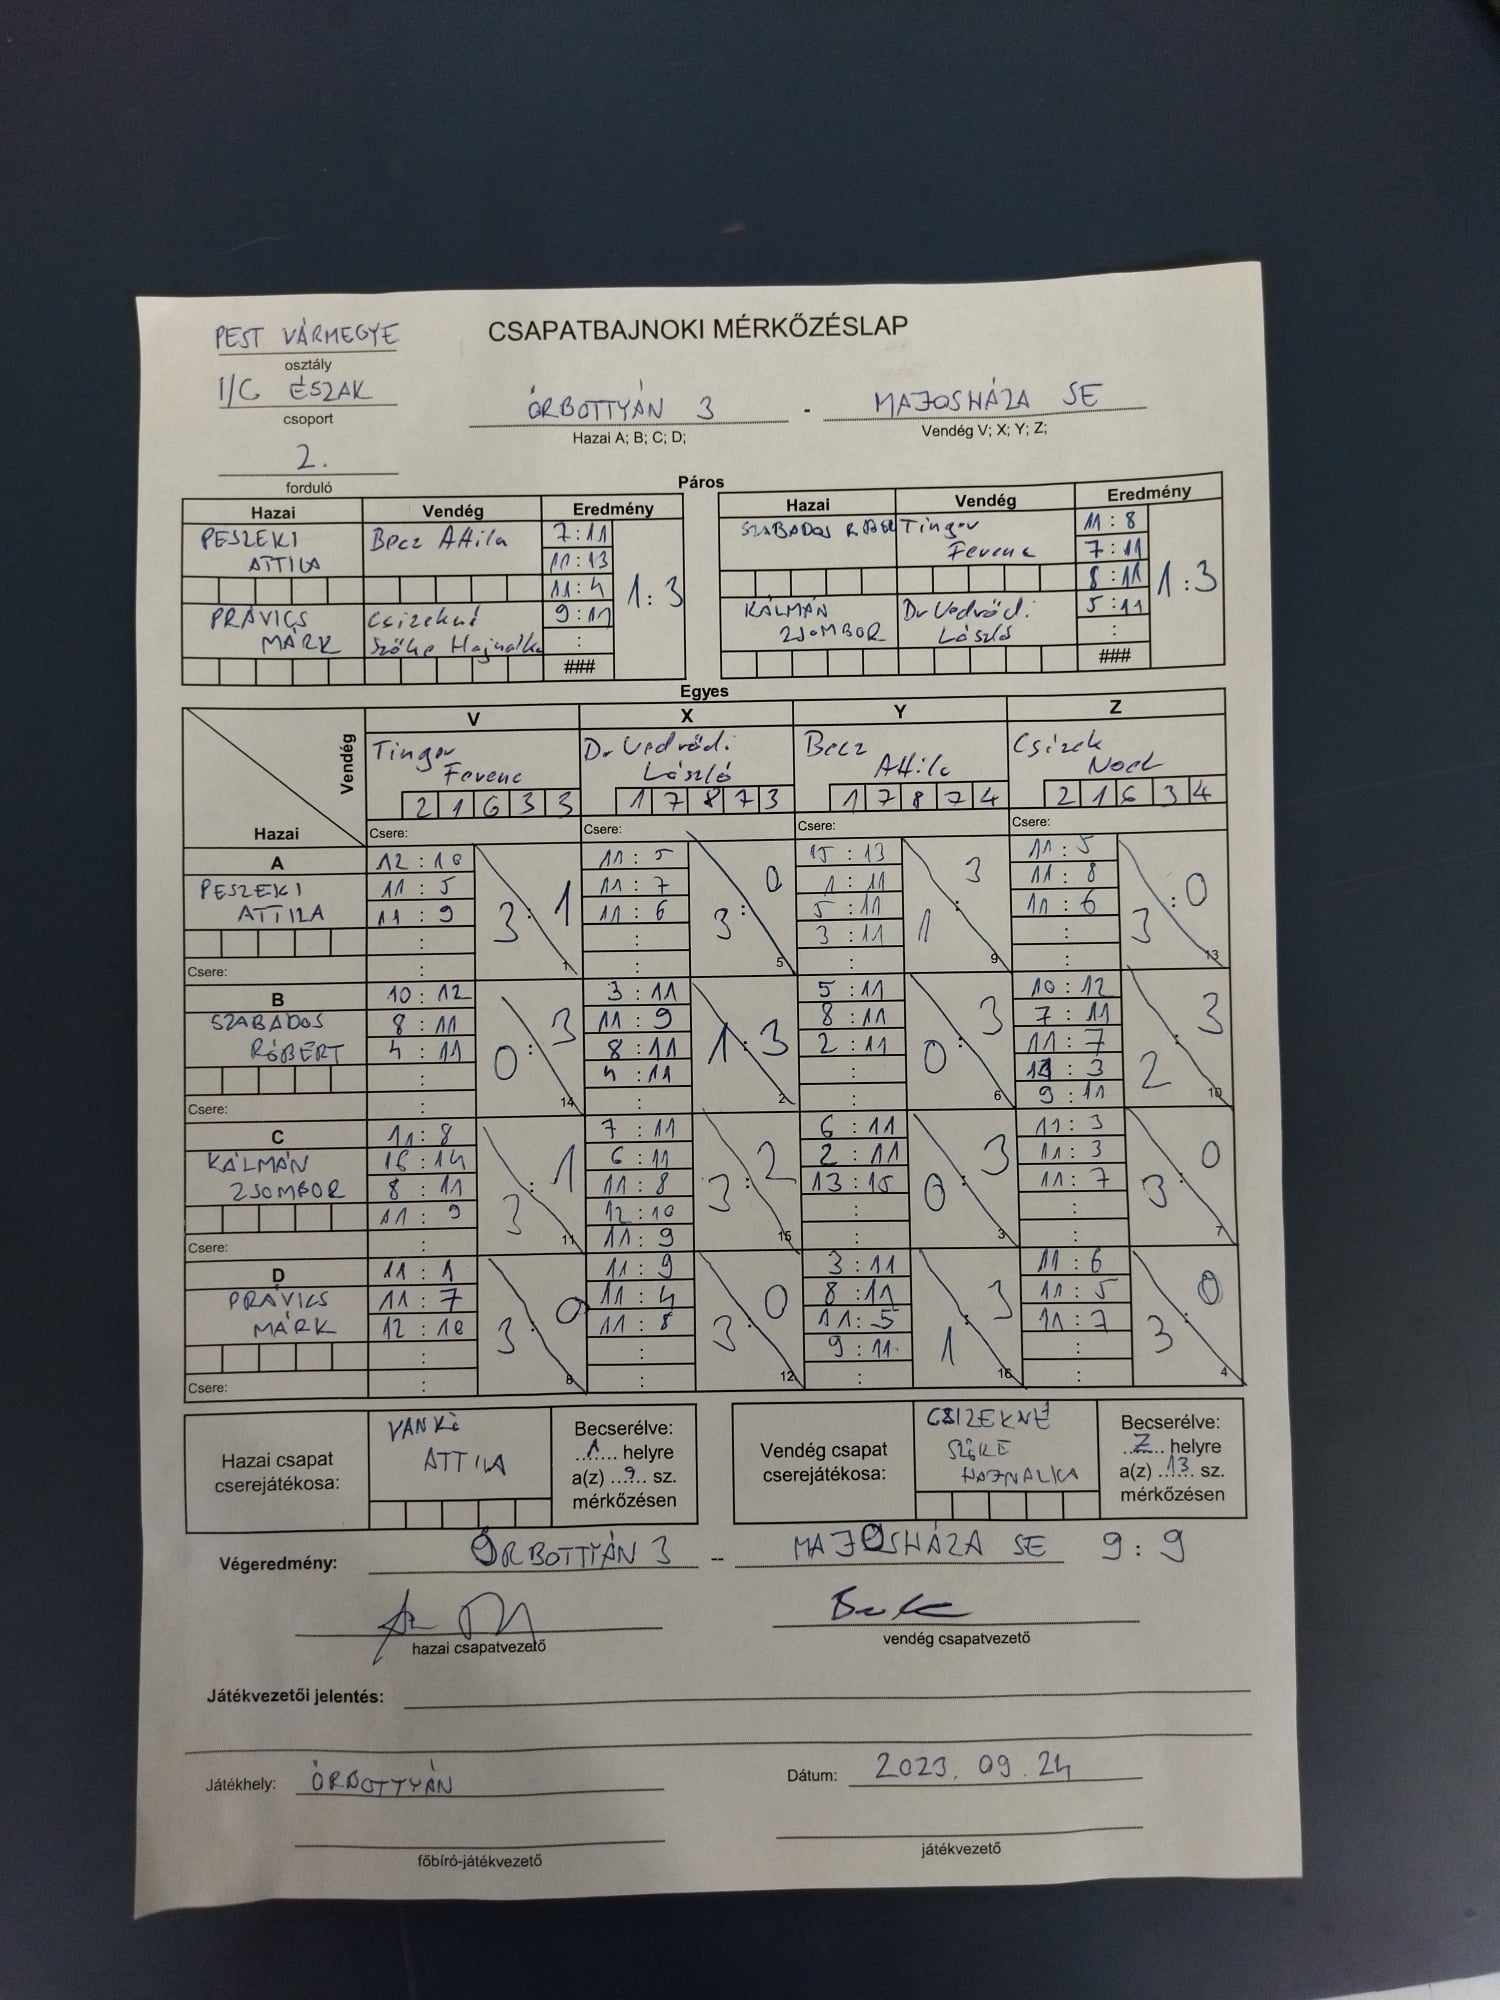 PEST VÁRMEGYE
osztály
CSAPATBAJNOKI MÉRKŐZÉSLAP
I/C ÉSZAK
csoport
ŐRBOTTYÁN 3 - MAJOSHÁZA SE
Hazai A; B; C; D; Vendég V; X; Y; Z;
2.
forduló
Páros
Hazai Vendég Eredmény
PESZEKI ATTILA Becz Attila
7:11
11:13
11:4
1:3
PRAVICS MÁRK Csizekné Szőke Hajnalka
9:11
:
###
Hazai Vendég Eredmény
SZABADOS RÓBERT Tingor Ferenc
11:8
7:11
8:11
1:3
KÁLMÁN ZSOMBOR Dr Vedrődi László
5:11
:
###
Egyes
Vendég
Hazai
V X Y Z
Tingor Ferenc
21633
Csere:
Dr Vedrődi László
17873
Csere:
Becz Attila
17874
Csere:
Csizek Noel
21634
Csere:
A
PESZEKI ATTILA
Csere:
12:10
11:5
11:9
:
:
3:1
1
11:5
11:7
11:6
:
:
3:0
5
15:13
1:11
5:11
3:11
:
1:3
9
11:5
11:8
11:6
:
:
3:0
13
B
SZABADOS RÓBERT
Csere:
10:12
8:11
4:11
:
:
0:3
14
3:11
11:9
8:11
4:11
:
1:3
2
5:11
8:11
2:11
:
:
0:3
6
10:12
7:11
11:7
: 3
9:11
2:3
10
C
KÁLMÁN ZSOMBOR
Csere:
11:8
16:14
8:11
11:9
:
3:1
11
7:11
6:11
11:8
12:10
11:9
3:2
15
6:11
2:11
13:15
:
:
0:3
3
11:3
11:3
11:7
:
:
3:0
7
D
PRAVICS MÁRK
Csere:
11:1
11:7
12:10
:
:
3:0
8
11:9
11:4
11:8
:
:
3:0
12
3:11
8:11
11:5
9:11
:
1:3
16
11:6
11:5
11:7
:
:
3:0
4
Hazai csapat
cserejátékosa:
ATTILA
Becserélve:
...... helyre
a(z) ..9.. sz.
mérkőzésen
Vendég csapat
cserejátékosa:
CSIZEKNÉ
SZŐKE
HAJNALKA
Becserélve:
..Z.. helyre
a(z) ..13.. sz.
mérkőzésen
Végeredmény: ŐRBOTTYÁN 3 - MAJOSHÁZA SE 9:9
hazai csapatvezető
vendég csapatvezető
Játékvezetői jelentés:
Játékhely: ŐRBOTTYÁN
Dátum: 2023. 09. 24
főbíró-játékvezető
játékvezető